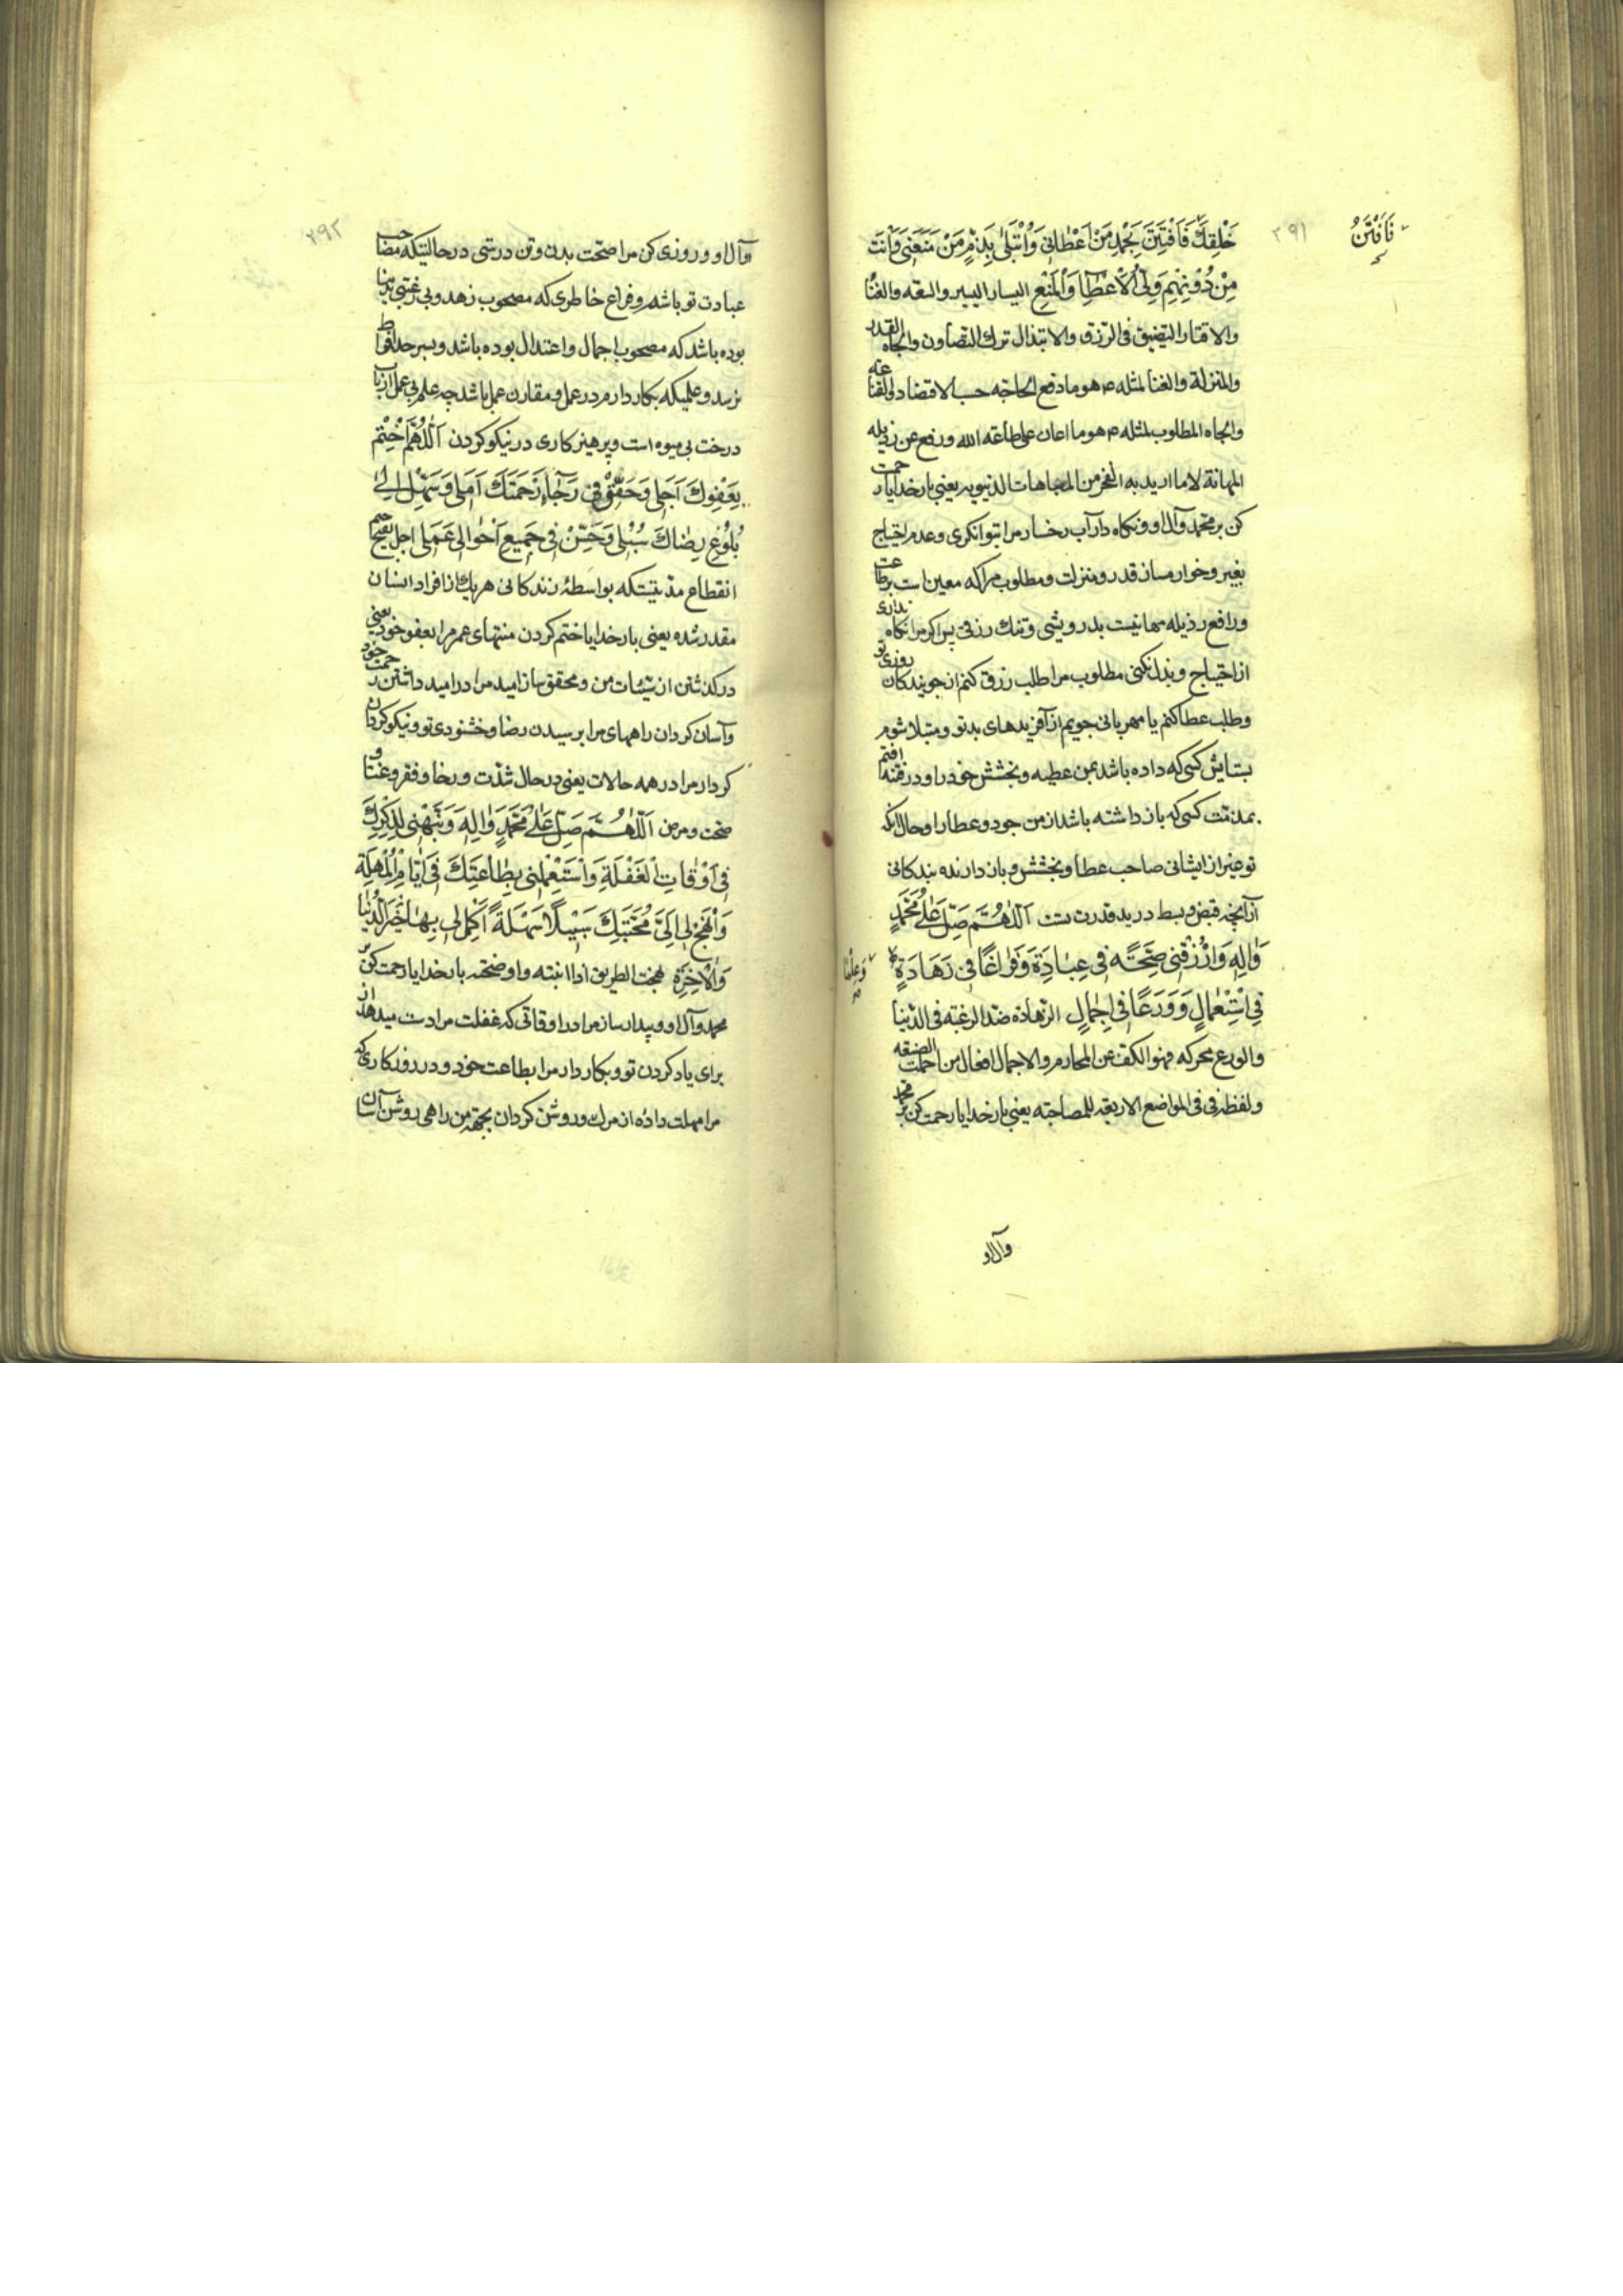 فَافْتَتِنُ
۳۹۱
خَلْقِكَ فَافْتَتِنَ بِحَمْدِ مَنْ اَعْطٰانِی وَاُبْتَلٰی بِذَمِّ مَنْ مَنَعَنِی وَاَنْتَ
مِنْ دُونِهِمْ وَلِیُّ الْاِعْطٰاءِ وَالْمَنْعِ الیسار الیسیر والسعه والغنا
والاقتار التضییق فی الرزق والابتذال ترك التصاون والجاه القدر
والمنزلة والغنا لمثله ع هو ما دفع الحاجه حسب الاقتضاد والغنا عنه
والجاه المطلوب لمثله ع هو ما اعان علی طاعته الله ورفع عن رذیله
المهانة لا ما ارید به الفخر من المباهات الدنیویه یعنی بار خدایا رحمت
کن بر محمد وآل او ونکاه دار آب رخسار مرا بتوانکری وعدم احتیاج
بغیر وخوار مساز قدر ومنزلت ومطلوب مرا که معین است بر طاعت
ورافع رذیله مهانیت بدرویشی وتنك رزقی پس اکر مرا نکاه نداری
از احتیاج وبذل نکنی مطلوب مرا طلب رزق کنم از جویندکان روزی تو
وطلب عطا کنم یا مهربانی جویم از آفریدهای بد تو ومبتلا شوم
بستایش کسی که داده باشد بمن عطیه وبخشش خود را ودر فتنه افتم
بمذمّت کسی که باز داشته باشد از من جود وعطا را وحال آنکه
تو غیر از ایشانی صاحب عطا وبخشش وباز دارنده بندکانی
از آنچه قبض وبسط در ید قدرت تست اَللّٰهُمَّ صَلِّ عَلٰی مُحَمَّدٍ
وَاٰلِهِ وَارْزُقْنِی صِحَّةً فِی عِبٰادَةٍ وَفَرٰاغًا فِی زَهٰادَةٍ
وَعِلْمًا
فِی اسْتِعْمٰالٍ وَوَرَعًا فِی اِجْمٰالٍ الزهادة ضد الرغبته فی الدنیا
والورع محرکه فهو الکف عن المحارم والاجمال افعال من اجملت الصنیعه
ولفظه فی فی المواضع الاربعه للمصاحبه یعنی بار خدایا رحمت کن بر محمد
وآل او
۳۹۲
وآل او وروزی کن مرا صحّت بدن وتن درستی در حالتیکه مصاحب
عبادت تو باشم وفراغ خاطری که مصحوب زهد وبی رغبتی بدنیا
بوده باشد که مصحوب اجمال واعتدال بوده باشد وبسر حد افراط
نرسد وعلمیکه بکار دارم در عمل ومقارن عمل باشد چه علم بی عمل از باب
درخت بی میوه است وپرهیز کاری در نیکو کردن اَللّٰهُمَّ اخْتِمْ
بِعَفْوِكَ اَجَلِی وَحَقِّقْ فِی رَجٰاءِ رَحْمَتِكَ اَمَلِی وَسَهِّلْ اِلٰی
بُلُوغِ رِضٰاكَ سُبُلِی وَحَسِّنْ فِی جَمِیعِ اَحْوٰالِی عَمَلِی اجل بفتح جیم
انقطاع مدتیستکه بواسطهٔ زندکانی هر یك از افراد انسان
مقدر شده یعنی بار خدایا ختم کردن منتهای عمر مرا بعفو خود یعنی
در کذشتن از سیّئات من ومحقق ساز امید مرا در امید داشتن رحمت خود
وآسان کردان راههای مرا برسیدن رضا وخشنودی تو ونیکو کردان
کردار مرا در همه حالات یعنی در حال شدّت ورخا وفقر وغنا و
صحّت ومرض اَللّٰهُمَّ صَلِّ عَلٰی مُحَمَّدٍ وَاٰلِهِ وَنَبِّهْنِی لِذِکْرِكَ
فِی اَوْقٰاتِ الْغَفْلَةِ وَاسْتَعْمِلْنِی بِطٰاعَتِكَ فِی اَیّٰامِ الْمُهْلَةِ
وَانْهَجْ لِی اِلٰی مَحَبَّتِكَ سَبِیلًا سَهْلَةً اَکْمِلْ لِی بِهٰا خَیْرَ الدُّنْیٰا
وَالْاٰخِرَةِ نهجت الطریق اذا ابنته واوضحته بار خدایا رحمت کن بر
محمد وآل او وبیدار ساز مرا در اوقاتی که غفلت مرا دست میدهد از
برای یاد کردن تو وبکار دار مرا بطاعت خود ودر روزکاری که
مرا مهلت داده از مرك وروشن کردان بجهة من راهی روشن آسان